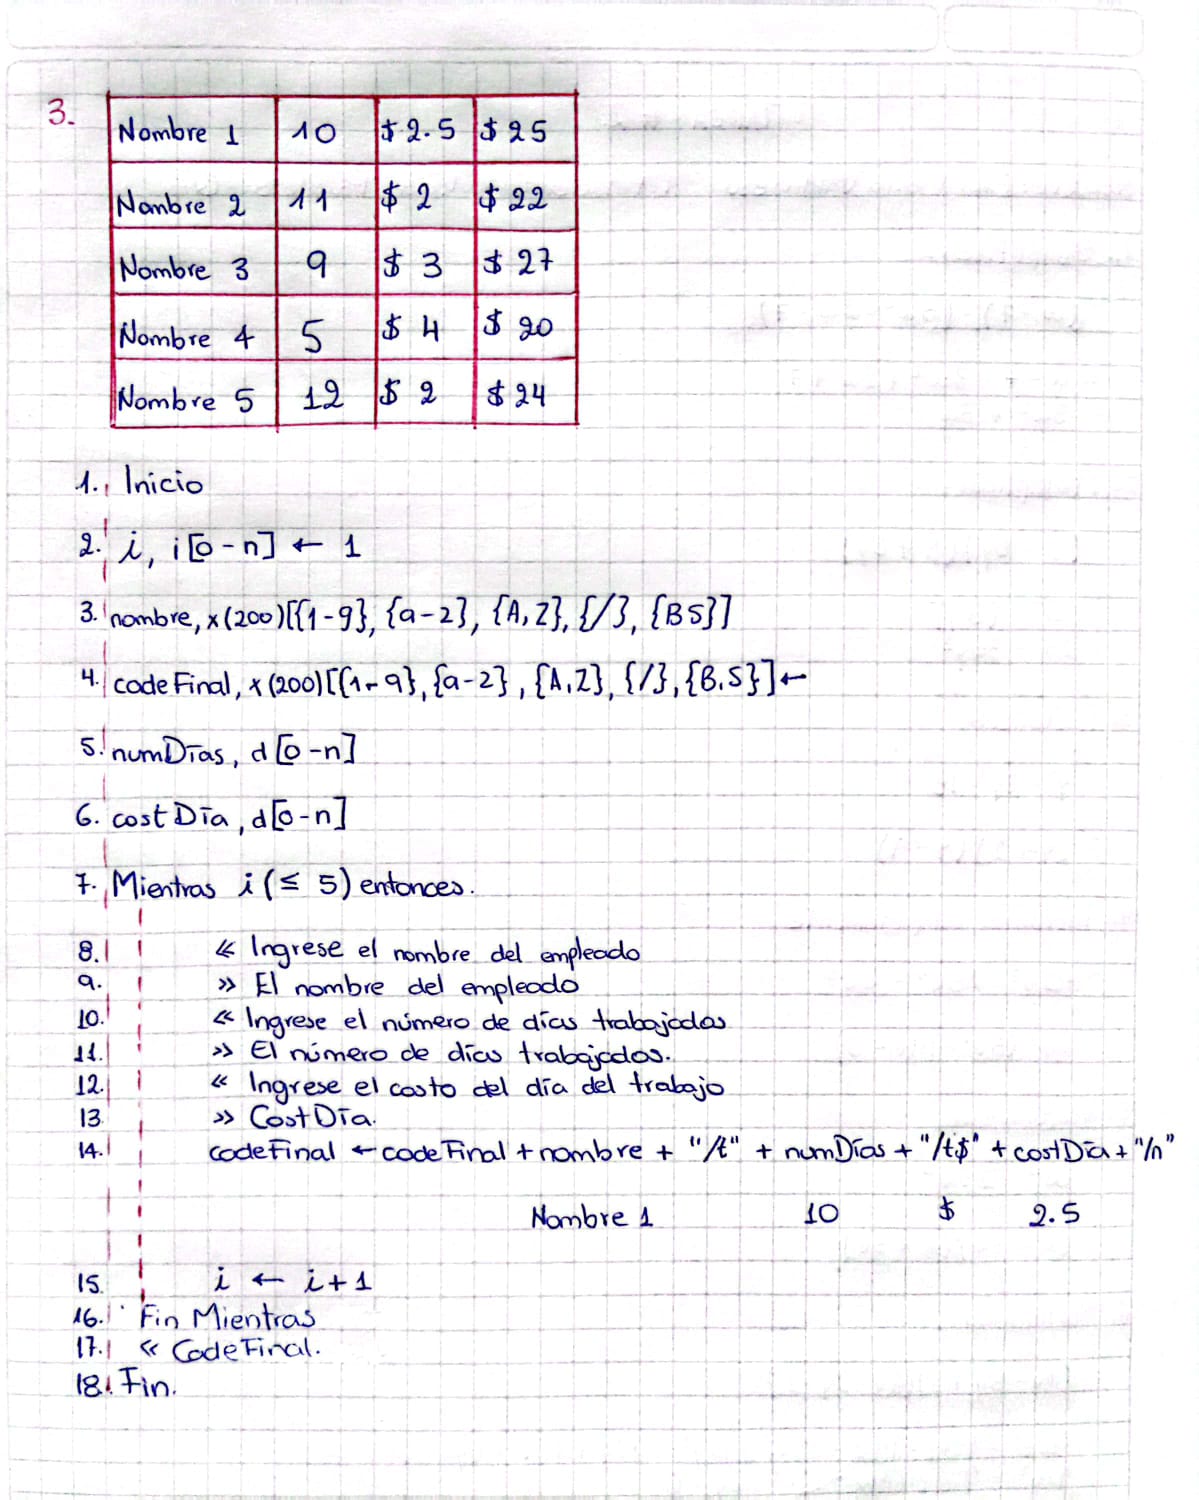 3.
Nombre 1 10 $ 2.5 $ 25
Nombre 2 11 $ 2 $ 22
Nombre 3 9 $ 3 $ 27
Nombre 4 5 $ 4 $ 20
Nombre 5 12 $ 2 $ 24
1. Inicio
2. i, i[0-n] ← 1
3. nombre, x(200)[{1-9}, {a-z}, {A,Z}, {/}, {BS}]
4. codeFinal, x(200)[{1-9}, {a-z}, {A,Z}, {/}, {B,S}] ←
5. numDías, d[0-n]
6. costDía, d[0-n]
7. Mientras i (≤ 5) entonces.
8. << Ingrese el nombre del empleado
9. >> El nombre del empleado
10. << Ingrese el número de días trabajados
11. >> El número de días trabajados.
12. << Ingrese el costo del día del trabajo
13 >> CostDía.
14. codeFinal ← codeFinal + nombre + "/t" + numDías + "/t$" + costDía + "/n"
Nombre 1 10 $ 2.5
15. i ← i+1
16. Fin Mientras
17. << CodeFinal.
18. Fin.